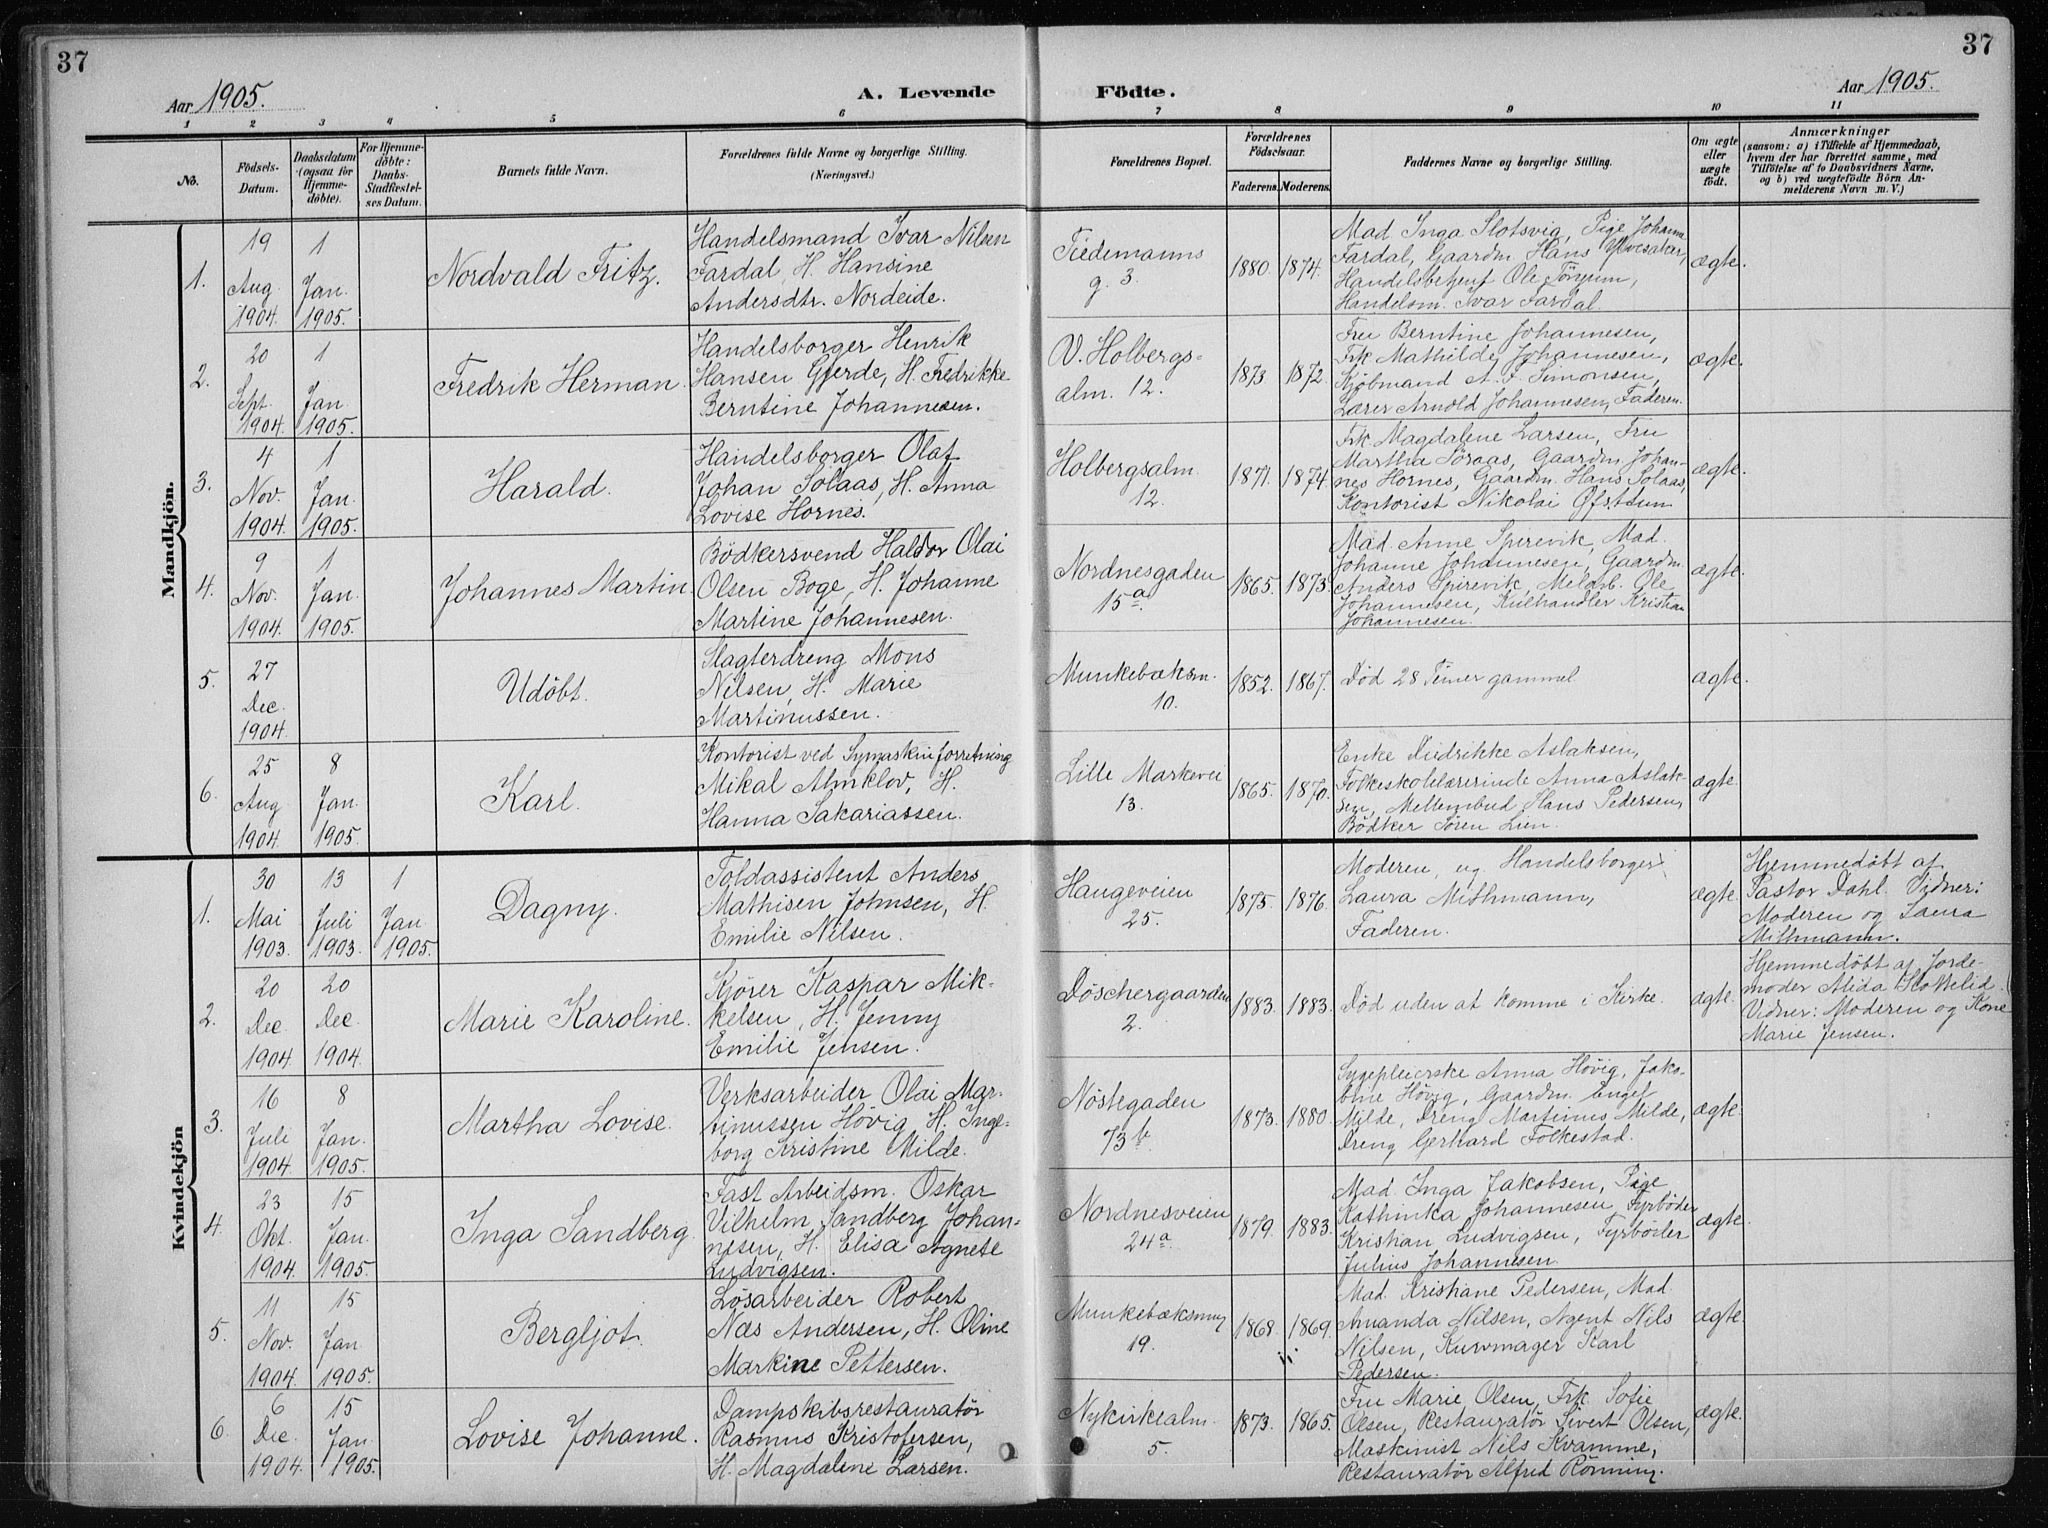 37
37
Aar 1905.
A. Levende
Födte.
Aar 1905.
1 2 3 4 5 6 7 8 9 10 11
No.
Födsels-
Datum.
Daabsdatum
(ogsaa for
Hjemme-
döbte).
For Hjemme-
döbte:
Daabs-
Stadfæstel-
ses Datum.
Barnets fulde Navn.
Forældrenes fulde Navne og borgerlige Stilling.
(Næringsvei.)
Forældrenes Bopæl.
Forældrenes
Födselsaar.
Faderens. Moderens.
Faddernes Navne og borgerlige Stilling.
Om ægte
eller
uægte
födt.
Anmærkninger
(saasom: a) i Tilfælde af Hjemmedaab,
hvem der har forrettet samme, med
Tilföielse af to Daabsvidners Navne,
og b) ved uægtefödte Börn An-
melderens Navn m. V.)
Mandkjön.
1.
19
Aug.
1904.
1
Jan.
1905.
Nordvald Fritz.
Handelsmand Ivar Nilsen
Fardal, H. Hansine
Andersdtr. Nordeide.
Tiedemanns
g. 3
1880. 1874.
Mad Inga Slotsvig, Pige Johanna
Fardal, Gaardm Hans Ylvesaker,
Handelsbetjent Ole Tøngum,
Handelsm. Ivar Fardal.
ægte.
2.
20
Sept.
1904.
1
Jan.
1905.
Fredrik Herman.
Handelsborger Henrik
Hansen Gjerde, H. Fredrikke
Berntine Johannesen.
V. Holbergs-
alm. 12.
1873 1872.
Fru Berntine Johannesen,
Frk Mathilde Johannesen,
Kjøbmand A. F. Simonsen,
Lærer Arnold Johannesen, Faderen.
ægte.
3.
4
Nov.
1904.
1
Jan.
1905.
Harald.
Handelsborger Olaf
Johan Solaas, H. Anna
Lovise Hornes.
Holbergsalm.
12.
1871. 1874.
Frk. Magdalene Larsen, Fru
Martha Søraas, Gaardm. Johan-
nes Hornes, Gaardm. Hans Solaas,
Kontorist Nikolai Øfstsun
ægte.
4.
9
Nov.
1904.
1
Jan.
1905.
Johannes Martin.
Bödkersvend Haldor Olai
Olsen Boge, H. Johanne
Martine Johannesen.
Nordnesgaden
15a.
1865. 1873.
Mad. Anne Spirevik, Mad.
Johanne Johannesen, Gaardm.
Anders Spirevik, Melarb. Ole
Johannesen, Kulhandler Kristian
Johannesen.
ægte.
5.
27
Dec.
1904.
Udøbt.
Slagterdreng Mons
Nilsen, H. Marie
Martinussen.
Munkebæksm.
10.
1852. 1867.
Død 28 Timer gammel
ægte.
6.
25
Aug
1904.
8
Jan.
1905.
Karl.
Kontorist ved Symaskinforretning
Mikal Almklov, H.
Hanna Sakariassen.
Lille Markevei
13.
1865. 1870.
Enke Didrikke Aslaksen,
Folkeskolelærerinde Anna Aslak-
sen, Mellembud Hans Pedersen,
Bödker Søren Lien.
ægte.
Kvindekjön
1.
30
Mai
1903.
13
Juli
1903.
1
Jan.
1905.
Dagny.
Toldassistent Anders
Mathisen Johnsen, H.
Emilie Nilsen.
Haugeveien
25.
1875. 1876.
Moderen, ug. Handelsborger
Laura Mithmann,
Faderen.
ægte.
Hjemmedøbt af
Pastor Dahl. Vidner:
Moderen og Laura
Mithmann.
2.
20
Dec.
1904.
20
Dec.
1904.
Marie Karoline.
Kjører Kaspar Mik-
kelsen, H. Jenny
Emilie Jensen.
Døschergaarden
2.
1883. 1883.
Død uden at komme i Kirke.
ægte.
Hjemmedøbt af Jorde-
moder Alida Slottelid.
Vidner: Moderen og Kone
Marie Jensen.
3.
16
Juli
1904.
8
Jan.
1905.
Martha Lovise.
Verksarbeider Olai Mar-
tinussen Høvig H. Inge-
borg Kristine Milde.
Nøstegaden
73b
1873. 1880.
Sygepleierske Anna Høvig, Jako-
bine Høvig, Gaardm. Engel
Milde, Dreng Martinus Milde,
Dreng Gerhard Folkestad.
ægte.
4.
23
Okt.
1904.
15
Jan.
1905.
Inga Sandberg.
Fast Arbeidsm. Oskar
Vilhelm Sandberg Johan-
nesen, H. Elisa Agnete
Ludvigsen.
Nordnesveien
24a.
1879. 1883.
Mad. Inga Jakobsen, Pige
Kathinka Johannesen, Fyrbøder
Kristian Ludvigsen, Fyrbøder
Julius Johannesen
ægte.
5.
11
Nov.
1904.
15
Jan
1905.
Bergljot.
Løsarbeider Robert
Næs Andersen, H. Oline
Markine Pettersen.
Munkebæksmug
19.
1868. 1869.
Mad. Kristiane Pedersen, Mad.
Amanda Nilsen, Agent Nils
Nilsen, Kurvmager Karl
Pedersen.
ægte.
6.
6
Dec.
1904.
15
Jan.
1905.
Lovise Johanne.
Dampskibsrestauratør
Rasmus Kristofersen,
H. Magdalene Larsen.
Nykirkealm.
5.
1873. 1865.
Fru Marie Olsen, Frk. Sofie
Olsen, Restauratør Sivert Olsen,
Maskinist Nils Kvamme,
Restauratør Alfred Rønning.
ægte.